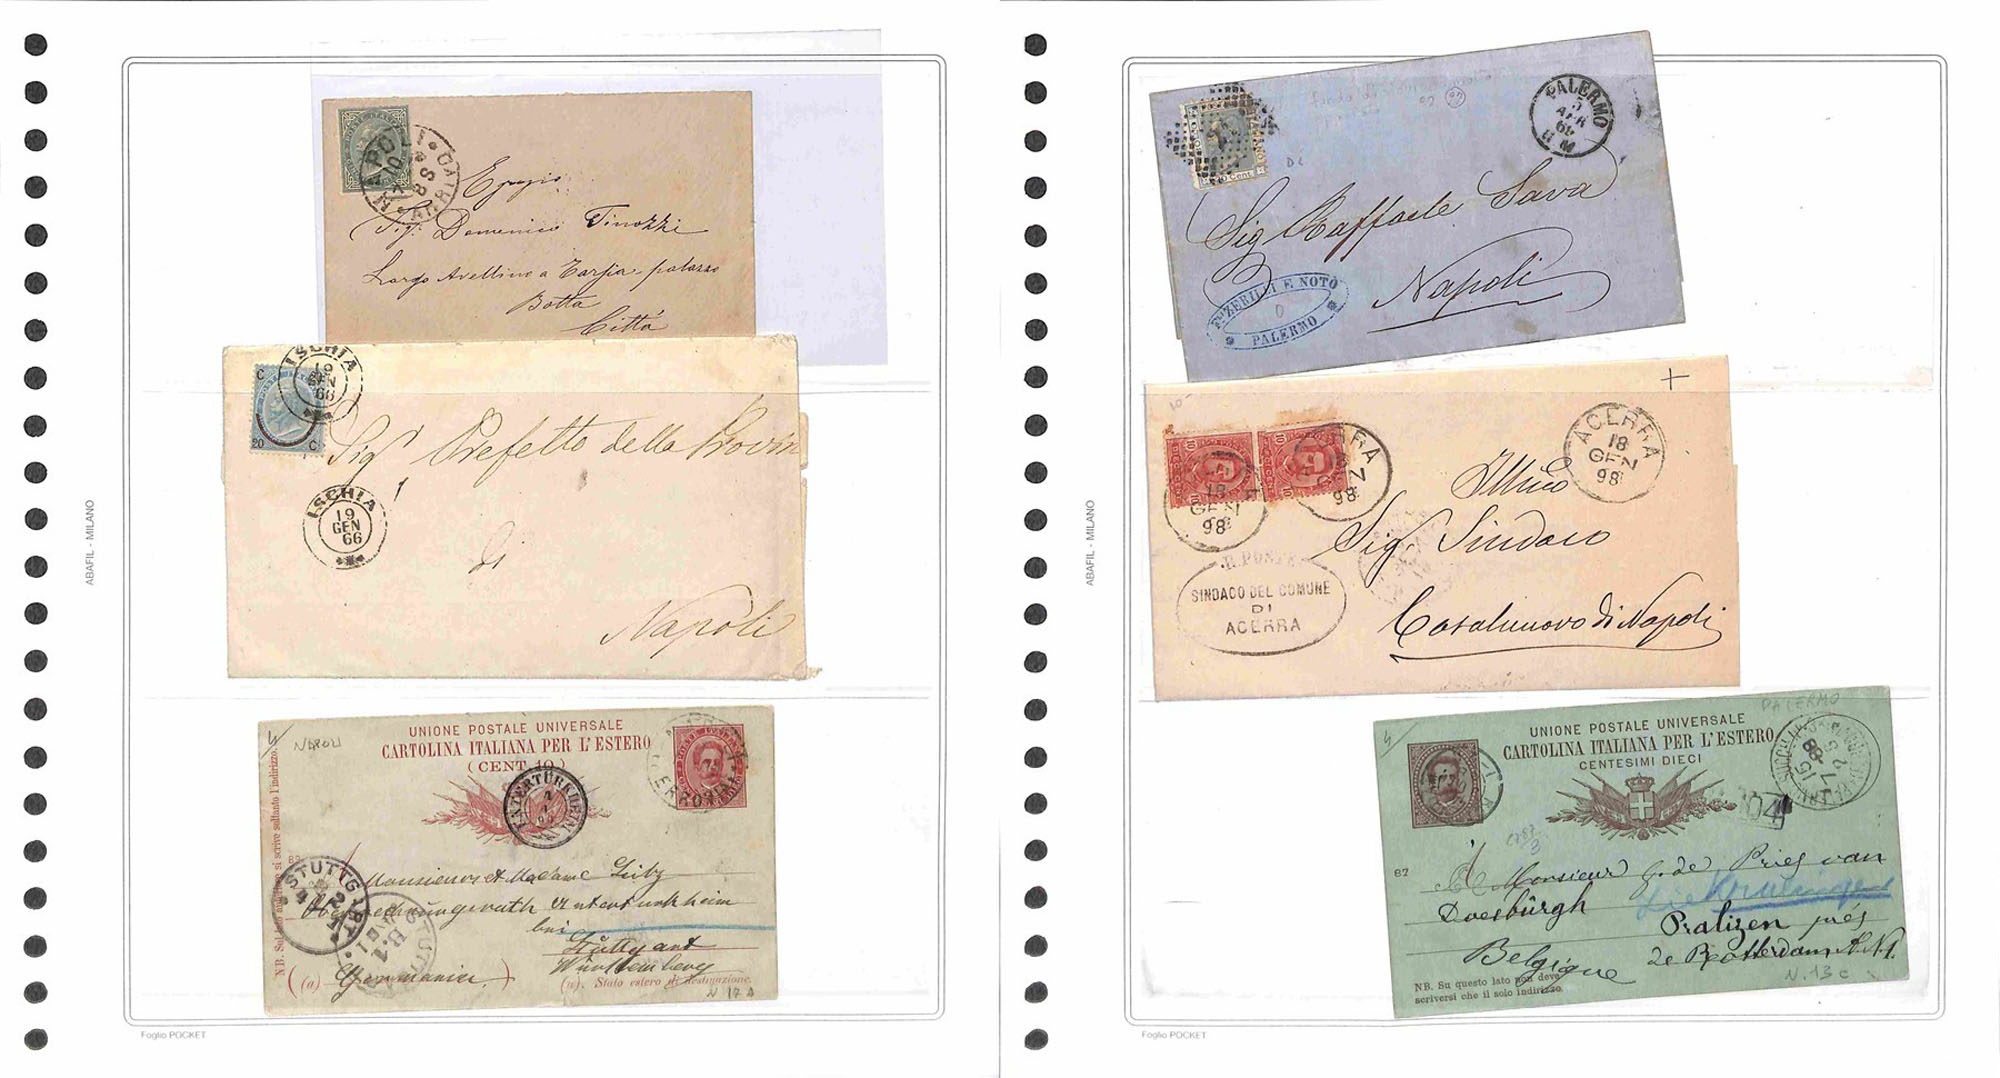 ABAFIL - MILANO
NAPOLI
10
85
Sig. Domenico Tinozzi
Largo Avellino a Tarsia palazzo
Botta
Città
C
20
C
ISCHIA
19
GEN
66
ISCHIA
19
GEN
66
Sig Prefetto della Provin
di
Napoli
Napoli
UNIONE POSTALE UNIVERSALE
CARTOLINA ITALIANA PER L'ESTERO
(CENT. 10)
UNTERTÜRKHEIM
N.B. Sul lato anteriore si scrive soltanto l'indirizzo.
STUTTGART
Monsieur et Madame
bei
Stuttgart
Württemberg
(a) Germania
(a) Stato estero di destinazione.
N 17 A
Foglio POCKET
ABAFIL - MILANO
PALERMO
5
APR
69
Sig Raffaele Sava
Napoli
Fr. ZERILLI E NOTO
PALERMO
ACERRA
18
GEN
98
18
GEN
98
98
Illmo
Sig Sindaco
Casalnuovo di Napoli
R. POSTE
SINDACO DEL COMUNE
DI
ACERRA
PALERMO
UNIONE POSTALE UNIVERSALE
CARTOLINA ITALIANA PER L'ESTERO
CENTESIMI DIECI
104
87
A Monsieur G. de Pries van
Doesbürgh
Pralizen près
Belgique
de Rotterdam
N. 13 c
NB. Su questo lato non deve
scriversi che il solo indirizzo.
Foglio POCKET